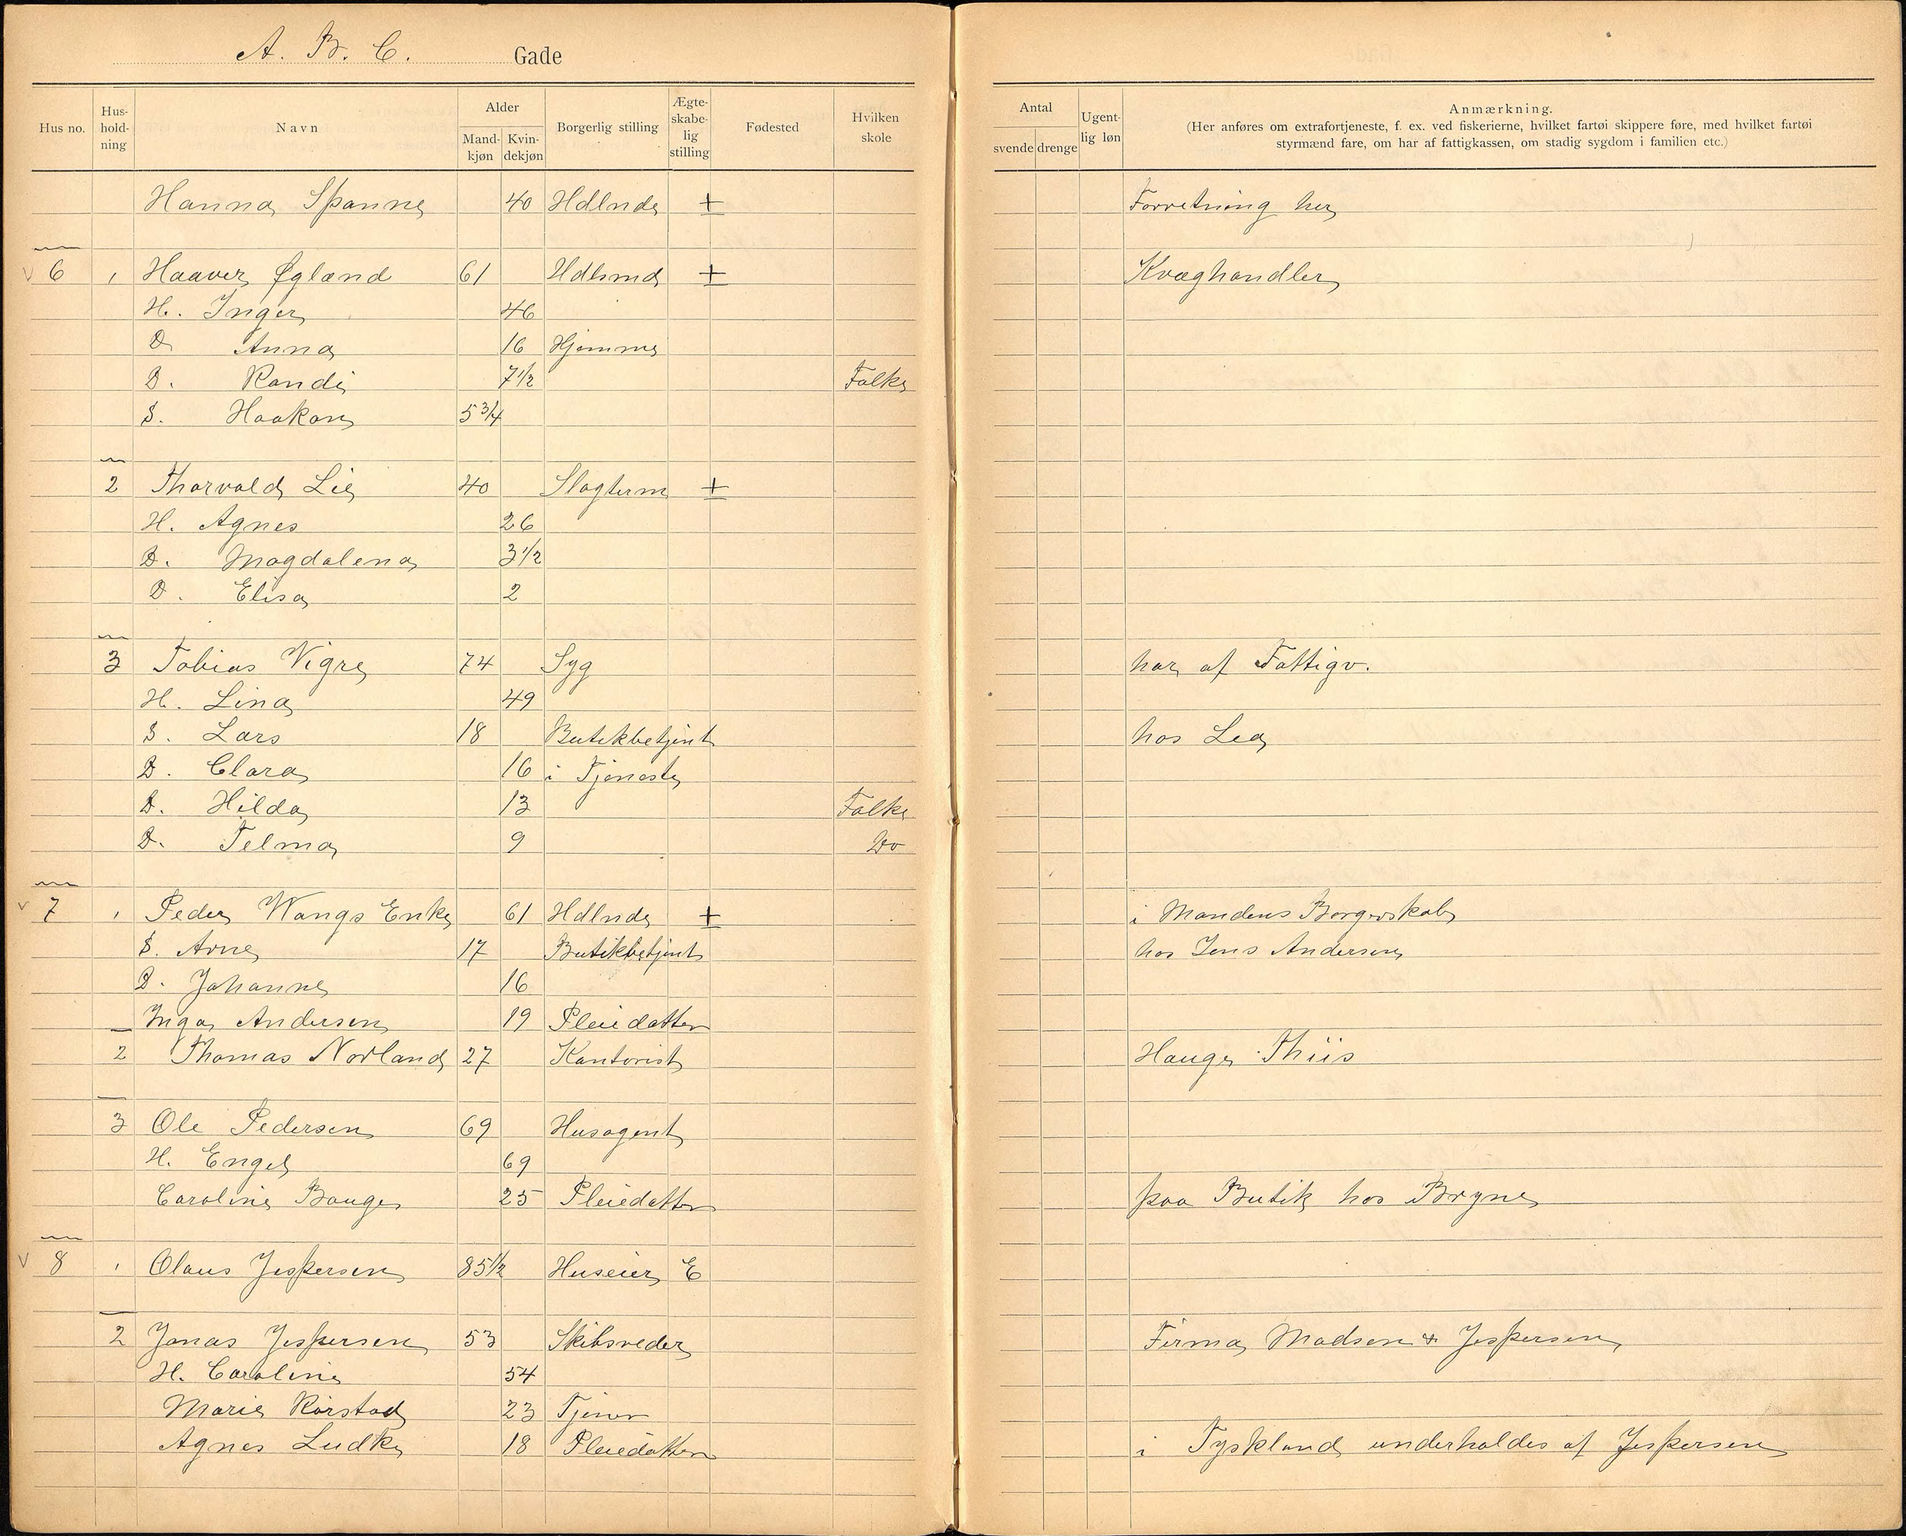 A. B. C. Gade
Hus no. Hus-hold-ning Navn Alder Mand-kjøn Kvin-dekjøn Borgerlig stilling Ægte-skabe-lig stilling Fødested Hvilken skole
Antal svende drenge Ugent-lig løn Anmærkning.
(Her anføres om extrafortjeneste, f. ex. ved fiskerierne, hvilket fartøi skippere føre, med hvilket fartøi
styrmænd fare, om har af fattigkassen, om stadig sygdom i familien etc.)
Hanna Spanne 40 Hdlnde + Forretning her
6 1 Haaver Øgland 61 Hdlsmd + Kvæghandler
H. Inger 46
D Anna 16 Hjemme
D. Randi 7 1/2 Folke
S. Haakon 5 3/4
2 Thorvald Lie 40 Slagterm +
H. Agnes 26
D. Magdalena 3 1/2
D. Elisa 2
3 Tobias Vigre 74 Syg har af Fattigv.
H. Lina 49
S. Lars 18 Butikbetjent hos Lea
D. Clara 16 i Tjeneste
D. Hilda 13 Folke
D. Telma 9 Do
7 1 Peder Wangs Enke 61 Hdlnde + i Mandens Borgerskab
S. Arne 17 Butikbetjent hos Jens Andersen
D. Johanne 16
Inga Andersen 19 Pleiedatter
2 Thomas Norland 27 Kontorist Hauge Thiis
3 Ole Pedersen 69 Husagent
H. Engel 69
Caroline Bauge 25 Pleiedatter paa Butik hos Bryne
8 1 Olaus Jespersen 85 1/2 Huseier E
2 Jonas Jespersen 53 Skibsreder Firma Madsen & Jespersen
H. Caroline 54
Marie Rorstad 23 Tjener
Agnes Ludke 18 Pleiedatter i Tyskland underholdes af Jespersen